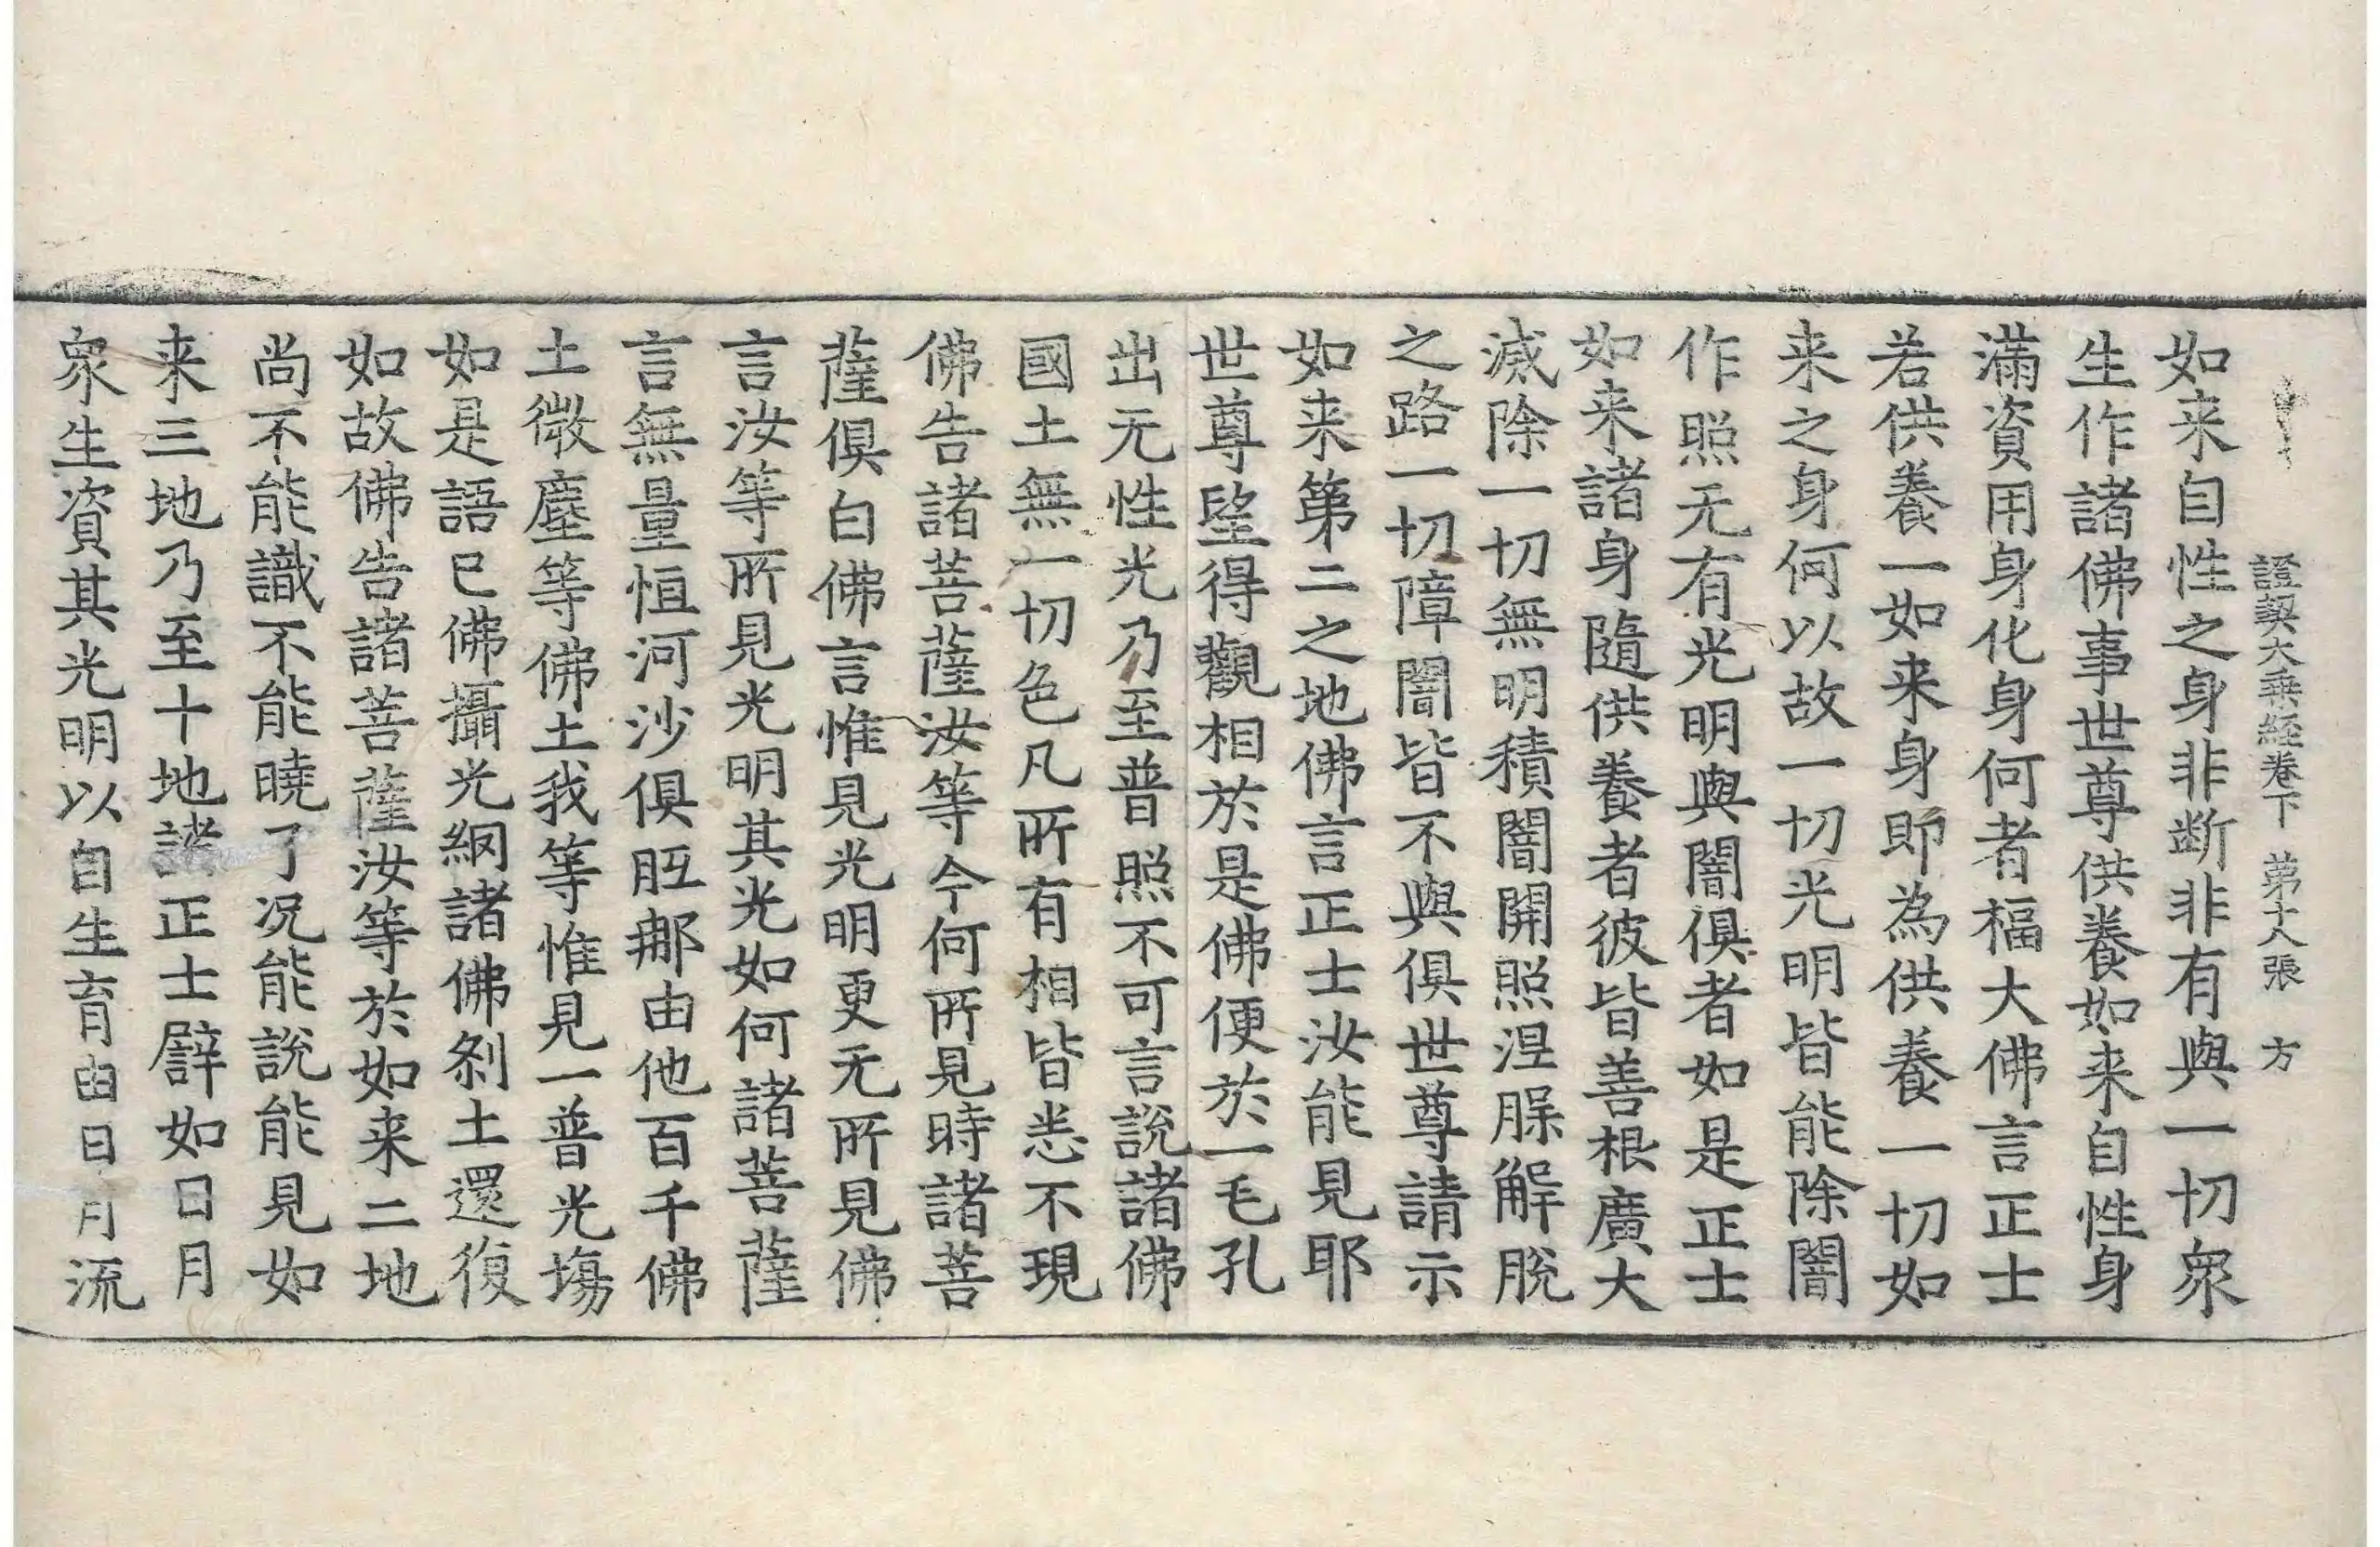 證契大乘経卷下 第十八張 方
如来自性之身非断非有與一切衆
生作諸佛事世尊供養如来自性身
滿資用身化身何者福大佛言正士
若供養一如来身即為供養一切如
来之身何以故一切光明皆能除闇
作照无有光明與闇俱者如是正士
如来諸身隨供養者彼皆善根廣大
滅除一切無明積闇開照涅脲解脫
之路一切障闇皆不與俱世尊請示
如来第二之地佛言正士汝能見耶
世尊望得觀相於是佛便於一毛孔
出无性光乃至普照不可言說諸佛
國土無一切色凡所有相皆悉不現
佛告諸菩薩汝等今何所見時諸菩
薩俱白佛言惟見光明更无所見佛
言汝等所見光明其光如何諸菩薩
言無量恒河沙俱胝那由他百千佛
土微塵等佛土我等惟見一普光塲
如是語已佛攝光網諸佛刹土還復
如故佛告諸菩薩汝等於如来二地
尚不能識不能曉了况能說能見如
来三地乃至十地諸正士譬如日月
衆生資其光明以自生育由日月流